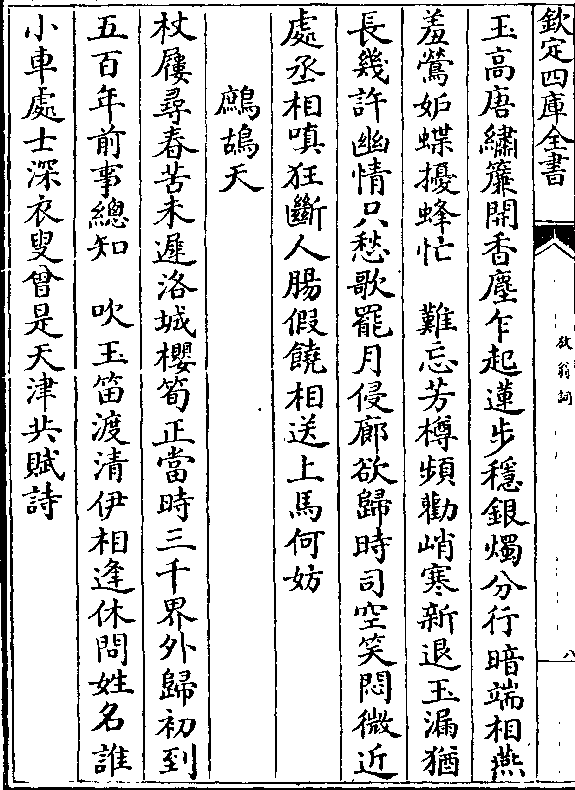 欽定四庫全書
放翁詞
八
玉高唐繡簾開香塵乍起蓮步穩銀燭分行暗端相燕
羞鶯妒蝶擾蜂忙　難忘芳樽頻勸峭寒新退玉漏猶
長幾許幽情只愁歌罷月侵廊欲歸時司空笑悶微近
處丞相嗔狂斷人腸假饒相送上馬何妨
鷓鴣天
杖屨尋春苦未遲洛城櫻筍正當時三千界外歸初到
五百年前事總知　吹玉笛渡清伊相逢休問姓名誰
小車處士深衣叟曾是天津共賦詩